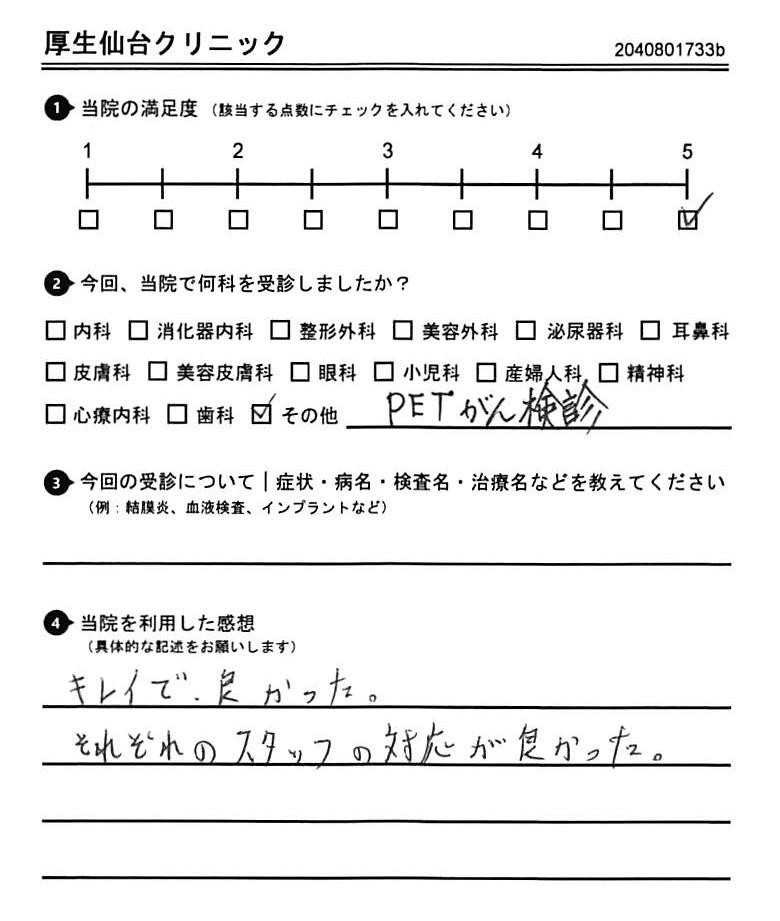 厚生仙台クリニック 2040801733b
1 当院の満足度 (該当する点数にチェックを入れてください)
1 2 3 4 5
2 今回、当院で何科を受診しましたか?
内科 消化器内科 整形外科 美容外科 泌尿器科 耳鼻科
皮膚科 美容皮膚科 眼科 小児科 産婦人科 精神科
心療内科 歯科 その他 PETがん検診
3 今回の受診について|症状・病名・検査名・治療名などを教えてください
(例:結膜炎、血液検査、インプラントなど)
4 当院を利用した感想
(具体的な記述をお願いします)
キレイで、良かった。
それぞれのスタッフの対応が良かった。